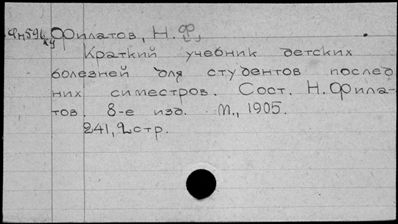 Филатов, Н. Ф.
Краткий учебник детских
болезней для студентов послед
них симестров. Сост. Н. Фила-
тов. 8-е изд. М., 1905.
241, 2 стр.